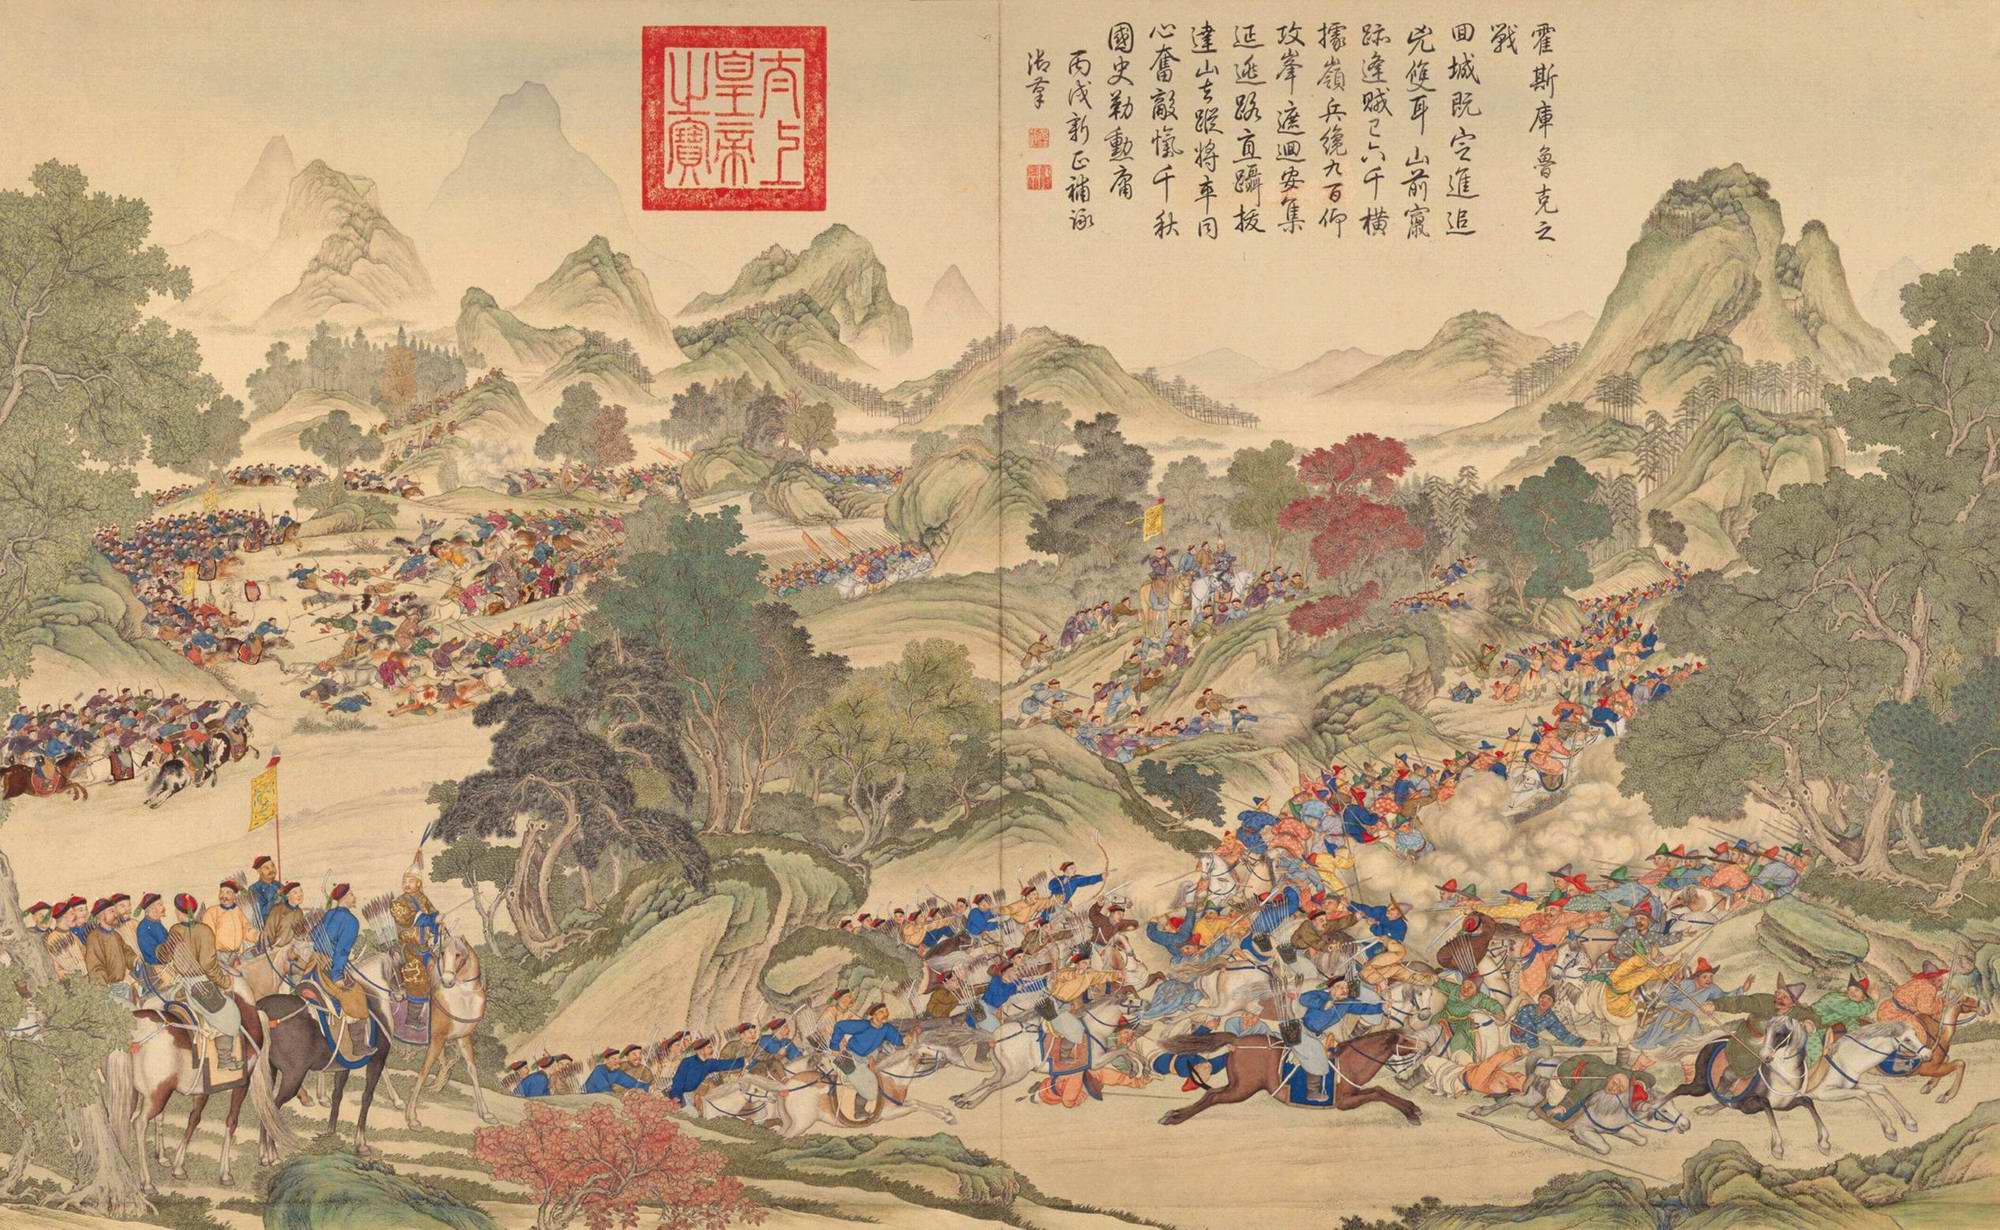 霍斯庫魯克之
戰
回城既定進追
兇雙耳山前窮
跡逢賊已六千橫
據嶺兵纔九百仰
攻峯遮迴安集
延逃路直躡拔
達山去蹤將卒同
心奮敵愾千秋
國史勒勳庸
丙戌新正補詠
御筆
太上
皇帝
之寶